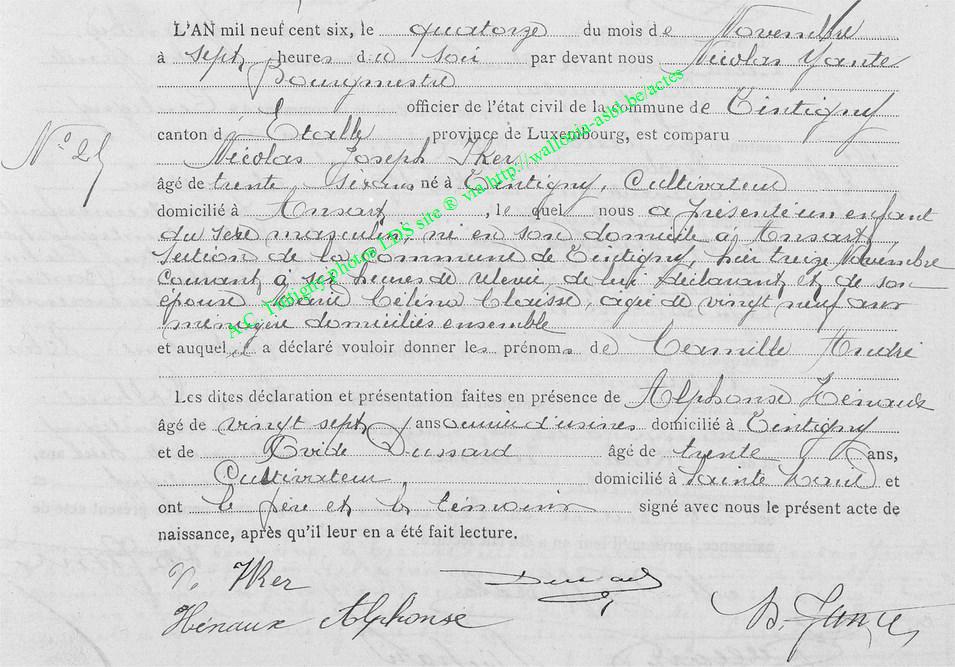 L'AN mil neuf cent six, le quatorze du mois de Novembre
à sept heures du soir par devant nous Nicolas Yante
Bourgmestre
officier de l'état civil de la commune de Tintigny
canton d' Etalle province de Luxembourg, est comparu
N° 25
Nicolas Joseph Iker
âgé de trente six ans né à Tintigny, Cultivateur
domicilié à Ansart, le quel nous a présenté un enfant
du sexe masculin, né en son domicile à Ansart,
section de la commune de Tintigny, hier treize Novembre
courant à six heures de relevée, de lui déclarant et de son
épouse Marie Célina Claisse, agée de vingt neuf ans
ménagère domiciliés ensemble
et auquel il a déclaré vouloir donner les prénoms de Camille André
Les dites déclaration et présentation faites en présence de Alphonse Hénaux
âgé de vingt sept ans ouvrier d'usines domicilié à Tintigny
et de Ovide Dussard âgé de trente ans,
Cultivateur, domicilié à Sainte Marie et
ont le père et les témoins signé avec nous le présent acte de
naissance, après qu'il leur en a été fait lecture.
N. Iker Dussard
Hénaux Alphonse N. Yante
A.C. Tintigny photos LDS site ® via http://wallonia-asbl.be/actes